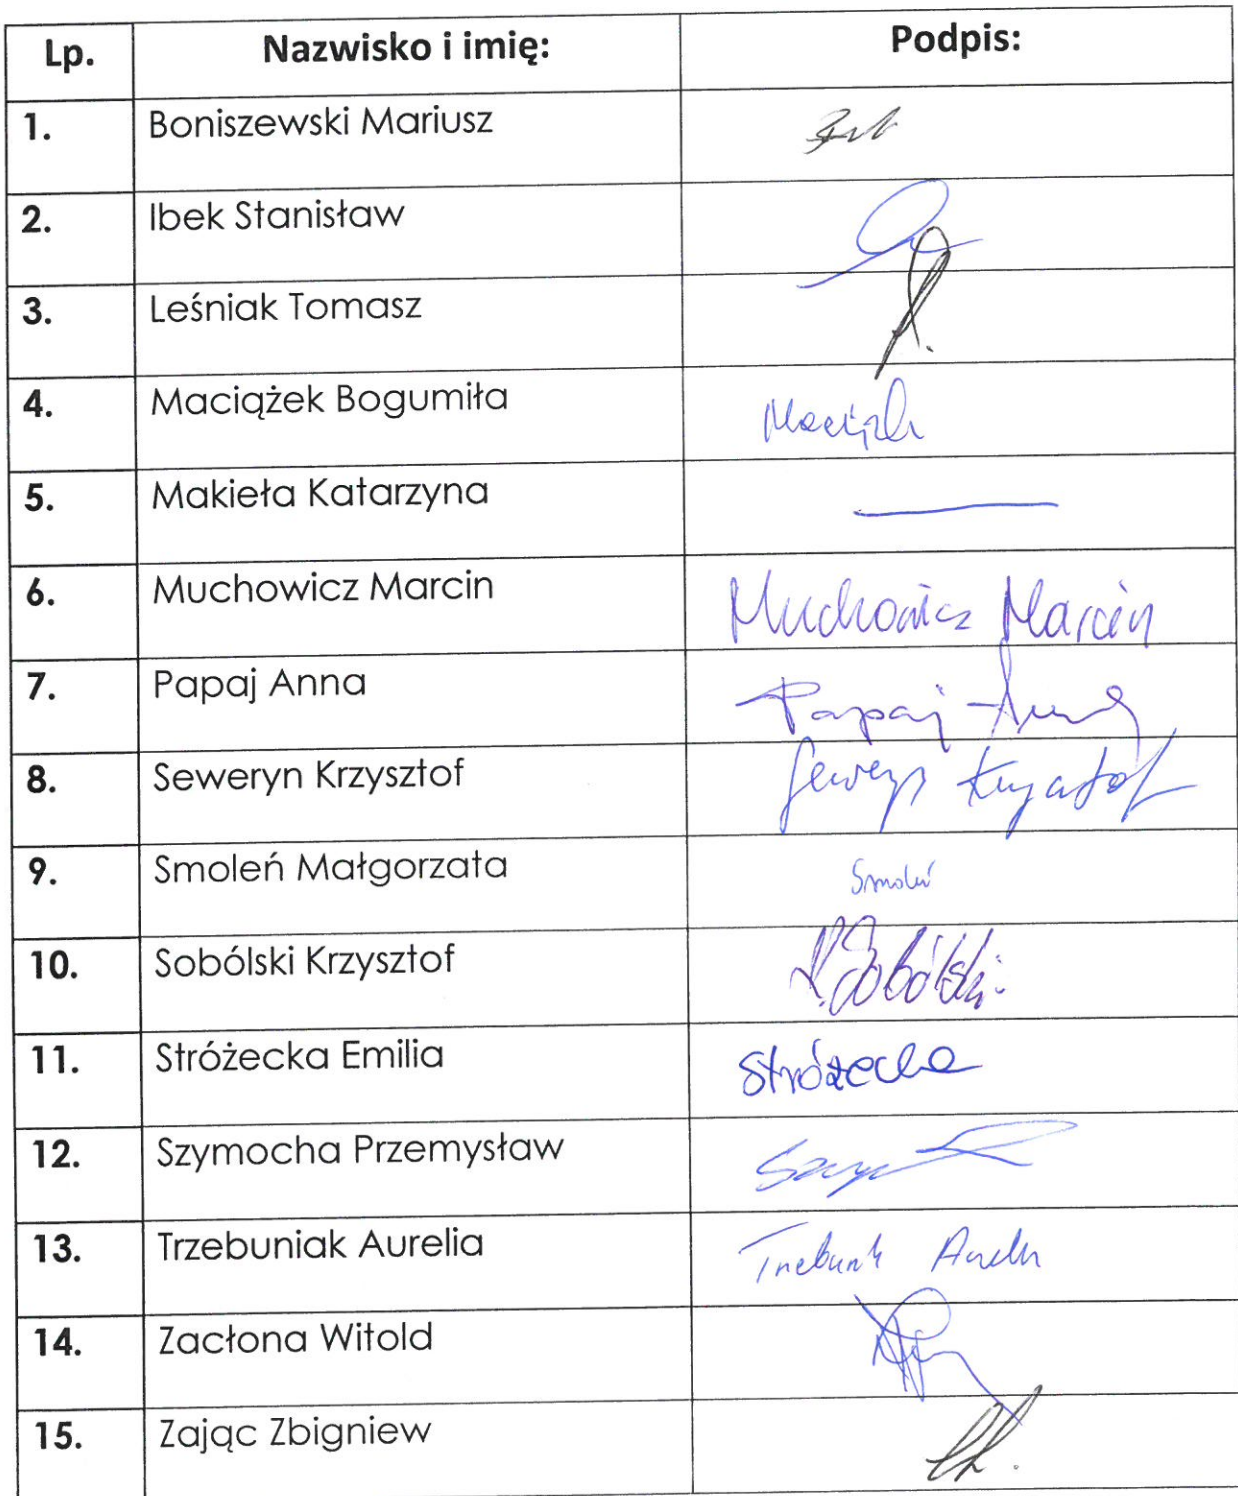 Lp. Nazwisko i imię: Podpis:
1. Boniszewski Mariusz
2. Ibek Stanisław
3. Leśniak Tomasz
4. Maciążek Bogumiła
5. Makieła Katarzyna
6. Muchowicz Marcin Muchowicz Marcin
7. Papaj Anna Papaj Anna
8. Seweryn Krzysztof Seweryn Krzysztof
9. Smoleń Małgorzata Smoleń
10. Sobólski Krzysztof K. Sobólski
11. Stróżecka Emilia Stróżecka
12. Szymocha Przemysław
13. Trzebuniak Aurelia
14. Zacłona Witold
15. Zając Zbigniew